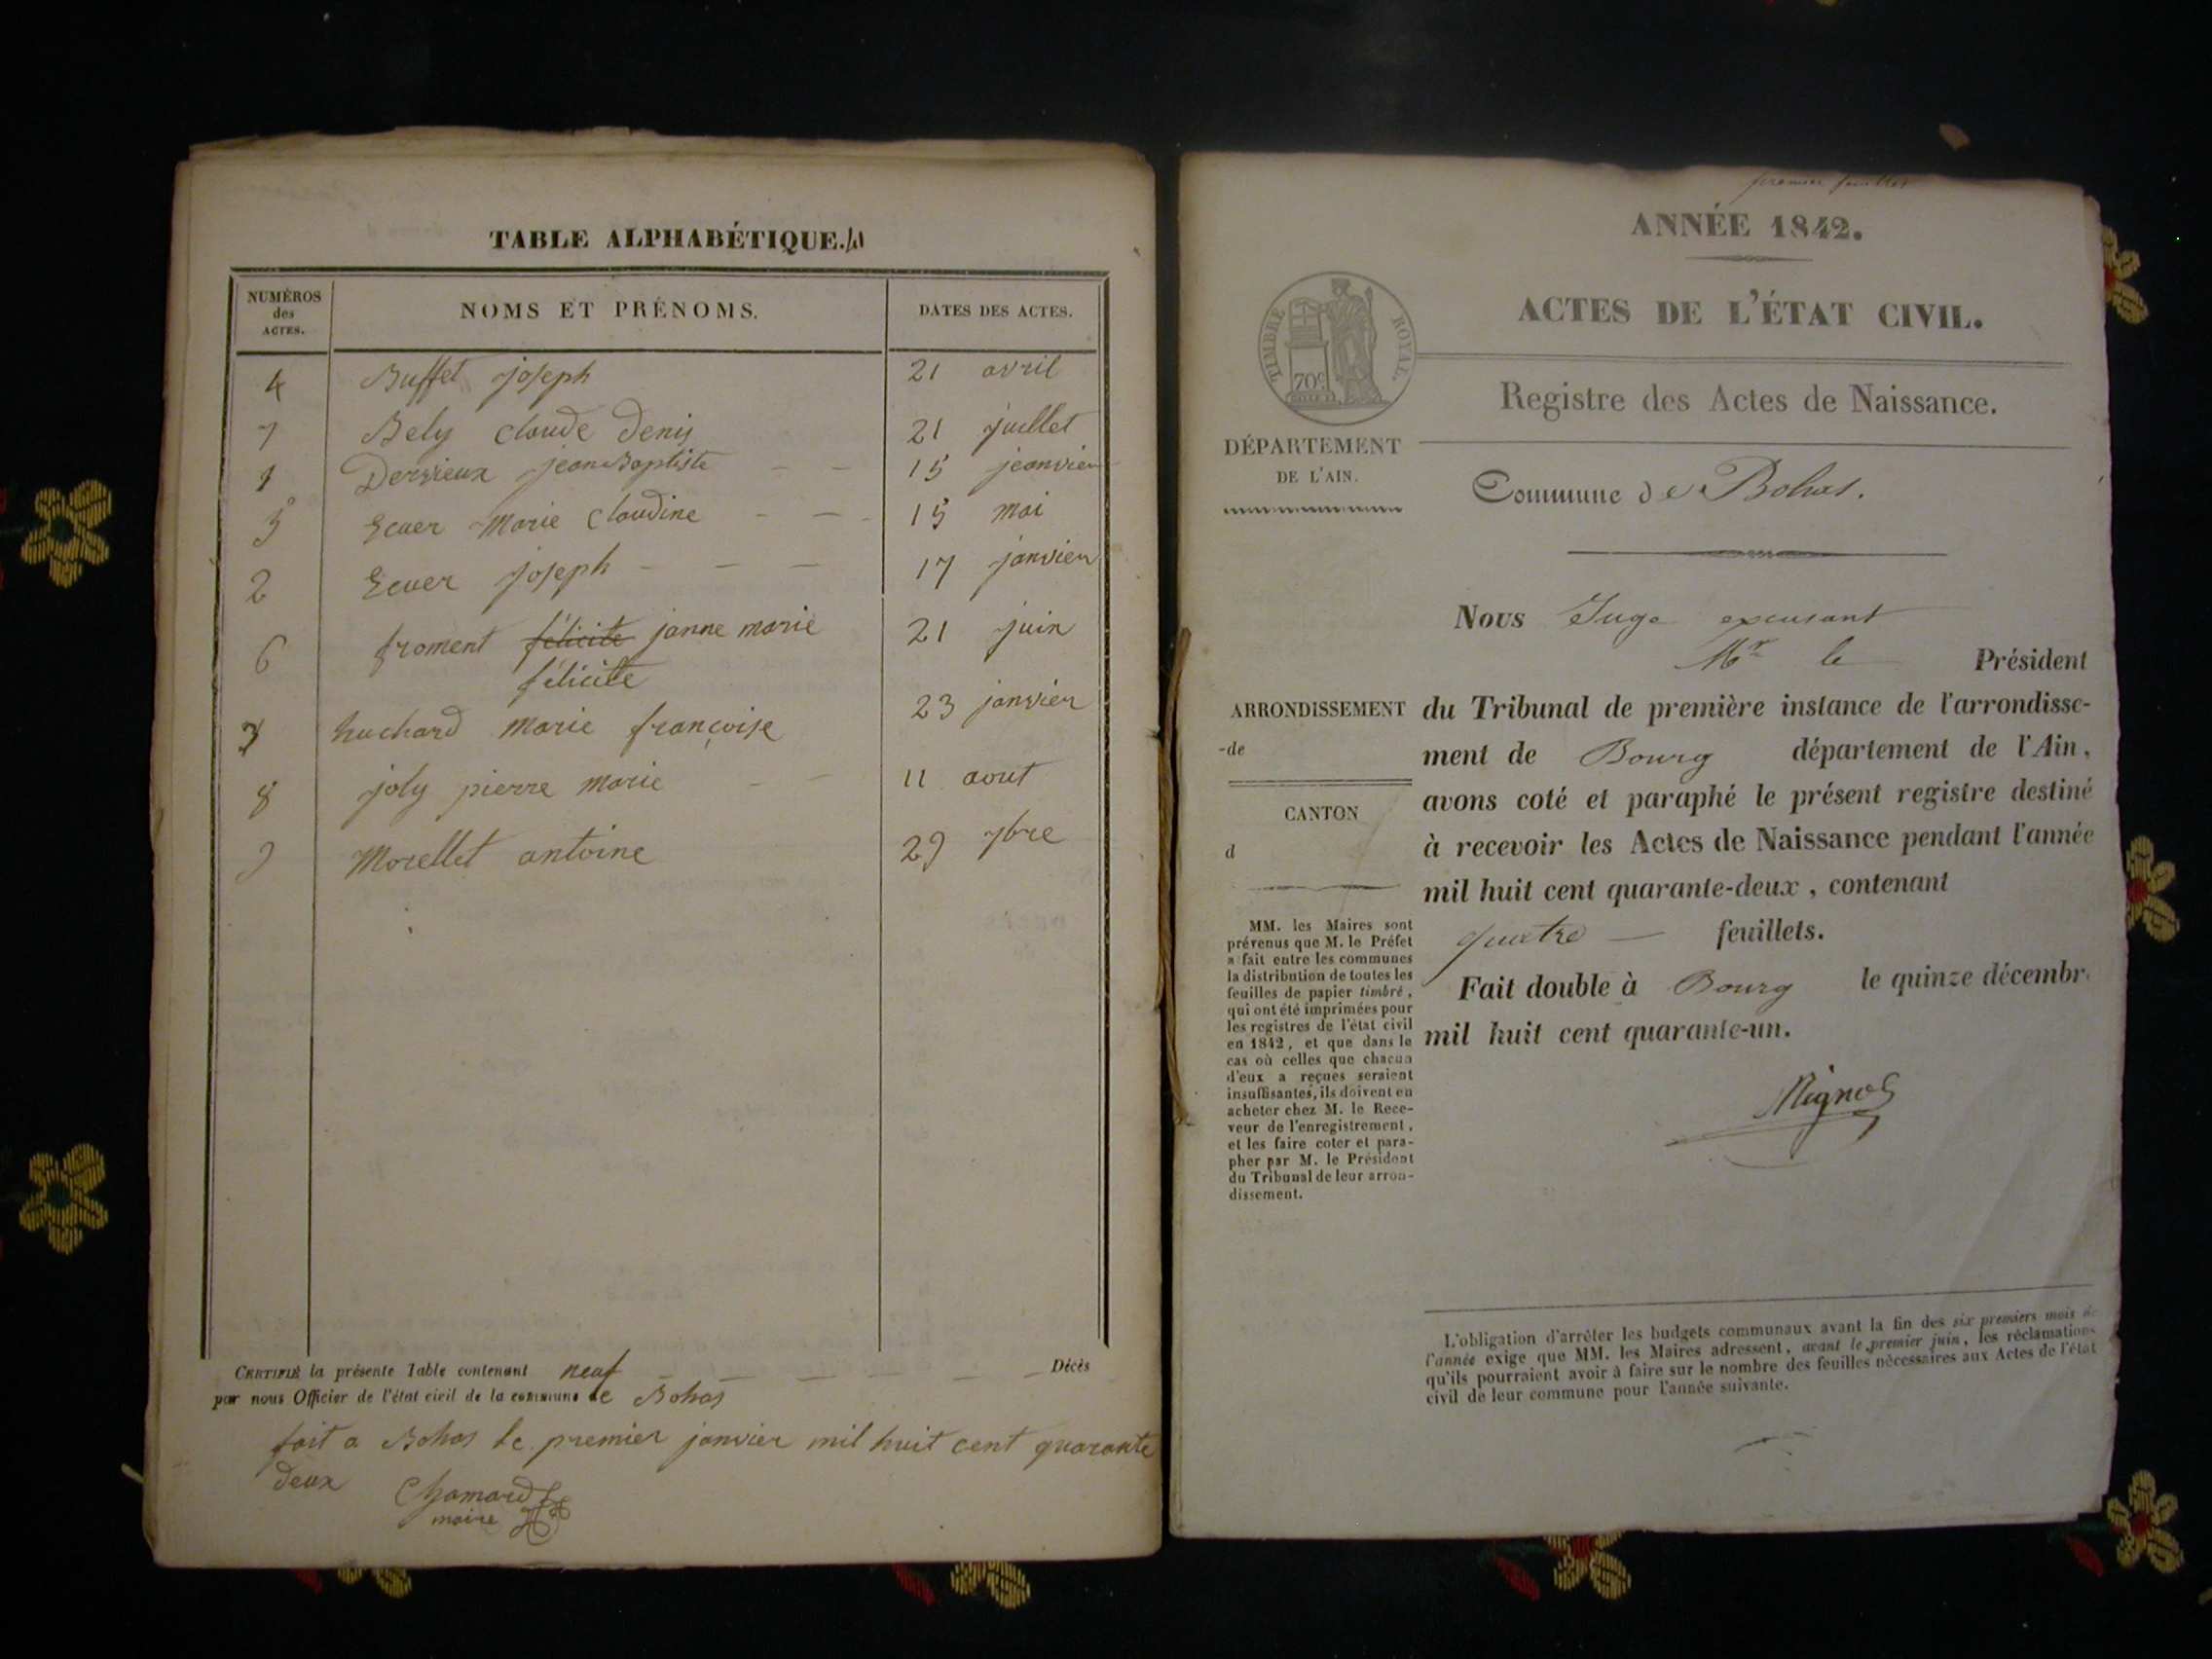 TABLE ALPHABÉTIQUE. 41
NUMÉROS
des
ACTES.
NOMS ET PRÉNOMS.
DATES DES ACTES.
4 Buffet joseph 21 avril
7 Bely claude denis 21 juillet
1 Dervieux jean Baptiste — — 15 jeanvier
5 Ecuer Marie Claudine — — - 15 mai
2 Ecuer joseph — — — 17 janvier
6 froment félicité janne marie 21 juin
félicité
3 huchard marie françoise 23 janvier
8 joly pierre marie — — 11 aout
9 Morellet antoine 29 7bre
CERTIFIÉ la présente Table contenant neuf — — — — — — Décès
par nous Officier de l'état civil de la commune de Bohas
fait a Bohas le premier janvier mil huit cent quarante
deux Chamard
maire
premier feuillet
ANNÉE 1842.
TIMBRE ROYAL.
70c
ACTES DE L'ÉTAT CIVIL.
Registre des Actes de Naissance.
DÉPARTEMENT
DE L'AIN.
Commune de Bohas.
Nous Juge excusant
Mr le Président
ARRONDISSEMENT
de
CANTON
d
du Tribunal de première instance de l'arrondisse-
ment de Bourg département de l'Ain,
avons coté et paraphé le présent registre destiné
à recevoir les Actes de Naissance pendant l'année
mil huit cent quarante-deux, contenant
quatre — feuillets.
Fait double à Bourg le quinze décembr
mil huit cent quarante-un.
MM. les Maires sont
prévenus que M. le Préfet
a fait entre les communes
la distribution de toutes les
feuilles de papier timbré,
qui ont été imprimées pour
les registres de l'état civil
en 1842, et que dans le
cas où celles que chacun
d'eux a reçues seraient
insuffisantes, ils doivent en
acheter chez M. le Rece-
veur de l'enregistrement,
et les faire coter et para-
pher par M. le Président
du Tribunal de leur arron-
dissement.
L'obligation d'arrêter les budgets communaux avant la fin des six premiers mois de
l'année exige que MM. les Maires adressent, avant le premier juin, les réclamations
qu'ils pourraient avoir à faire sur le nombre des feuilles nécessaires aux Actes de l'état
civil de leur commune pour l'année suivante.